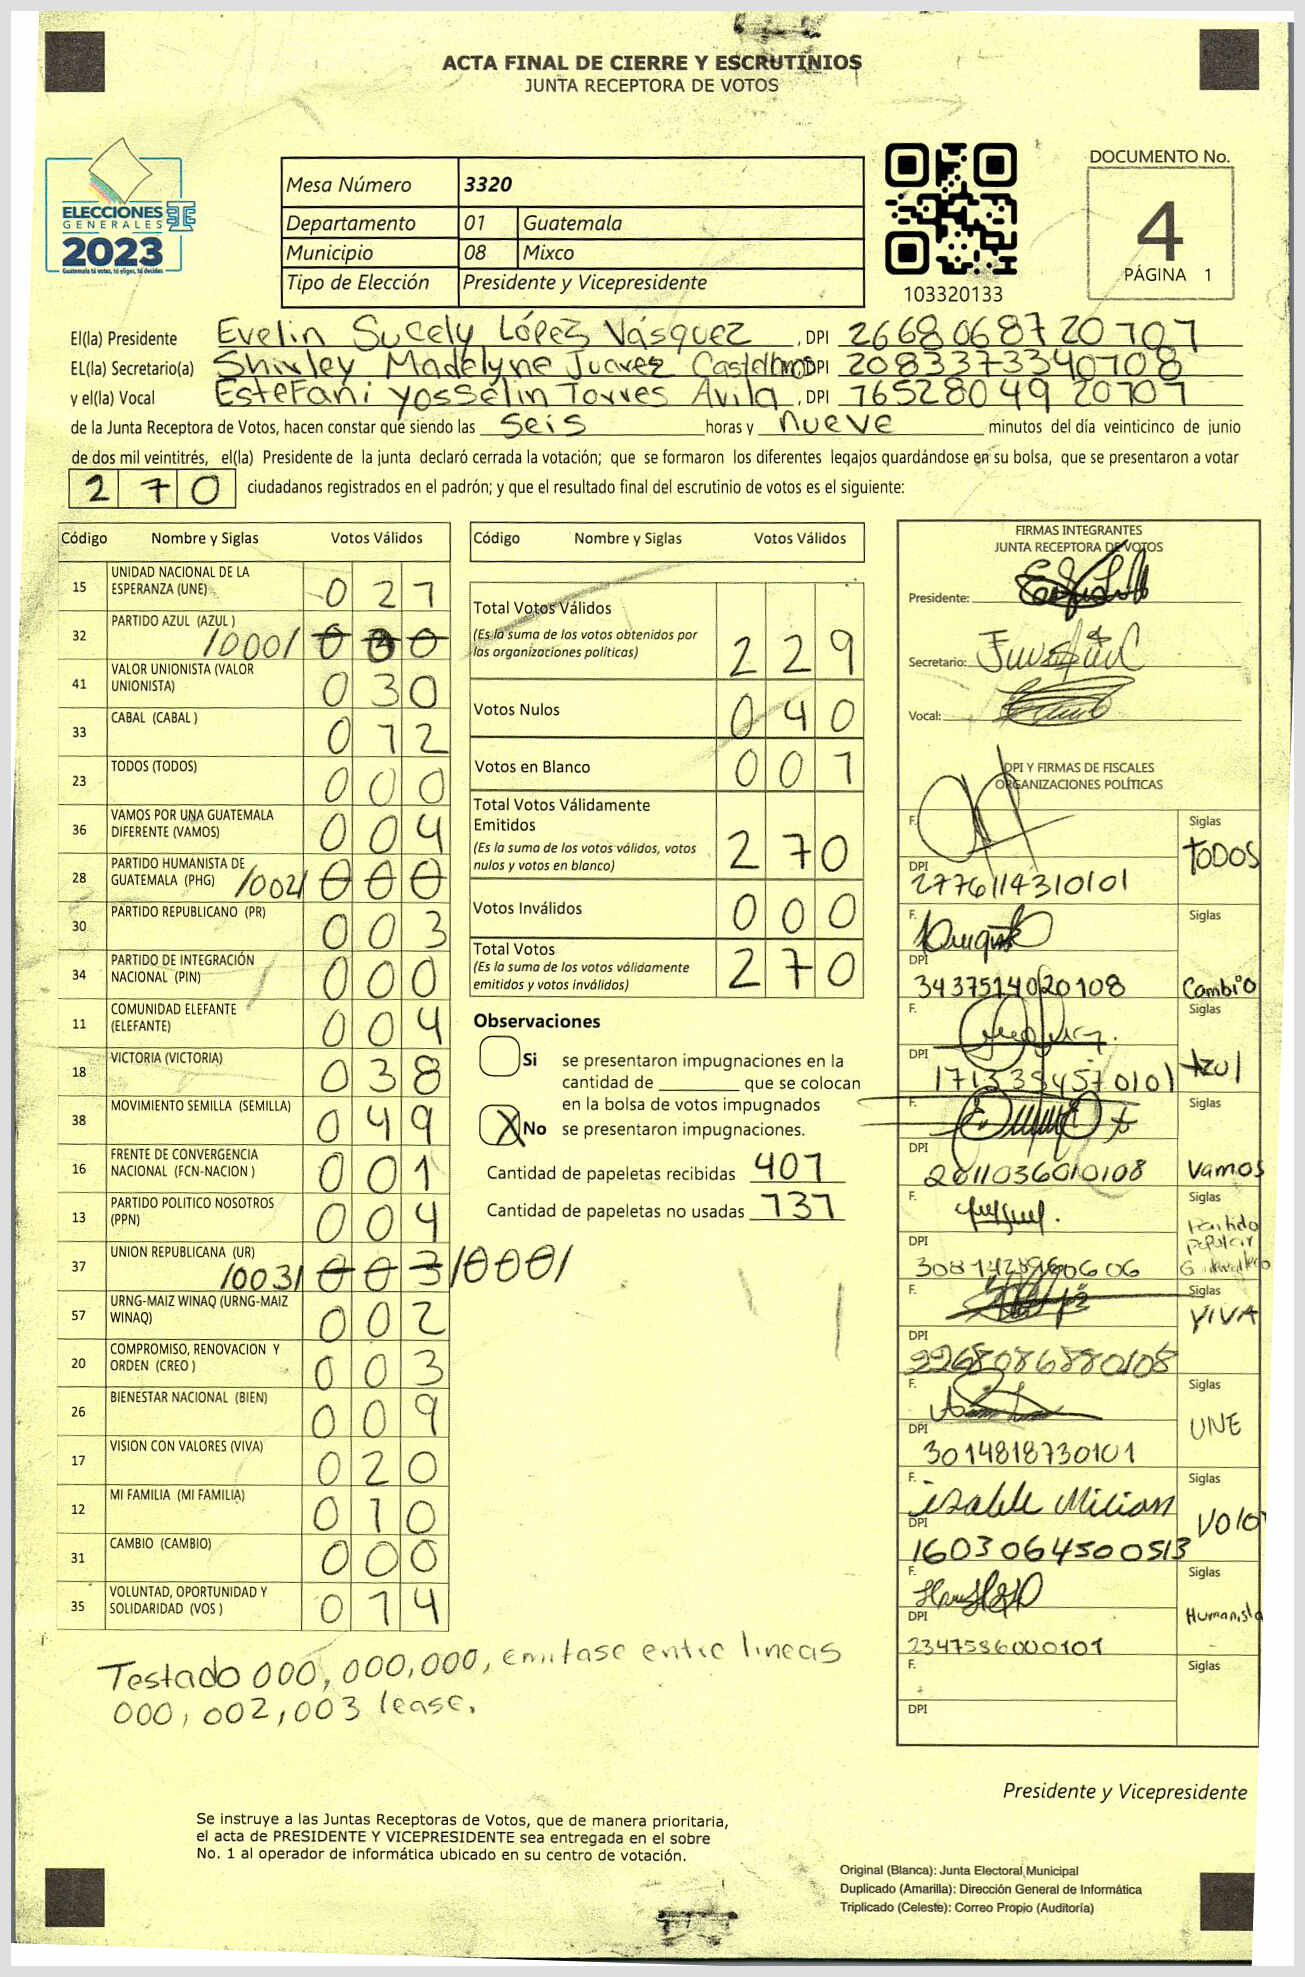 ACTA FINAL DE CIERRE Y ESCRUTINIOS
JUNTA RECEPTORA DE VOTOS
ELECCIONES
GENERALES
2023
Guatemala tú votas, tú eliges, tú decides
Mesa Número 3320
Departamento 01 Guatemala
Municipio 08 Mixco
Tipo de Elección Presidente y Vicepresidente
103320133
DOCUMENTO No.
4
PÁGINA 1
El(la) Presidente Evelin Sucely López Vásquez, DPI 2668068720707
EL(la) Secretario(a) Shirley Madelyne Juarez DPI 2083373340708
y el(la) Vocal Estefani Yosselin Torres Avila, DPI 1652804920707
de la Junta Receptora de Votos, hacen constar que siendo las seis horas y nueve minutos del día veinticinco de junio
de dos mil veintitrés, el(la) Presidente de la junta declaró cerrada la votación; que se formaron los diferentes legajos guardándose en su bolsa, que se presentaron a votar
270 ciudadanos registrados en el padrón; y que el resultado final del escrutinio de votos es el siguiente:
Código Nombre y Siglas Votos Válidos
15 UNIDAD NACIONAL DE LA ESPERANZA (UNE) 027
32 PARTIDO AZUL (AZUL ) /000/ 000
41 VALOR UNIONISTA (VALOR UNIONISTA) 030
33 CABAL (CABAL ) 012
23 TODOS (TODOS) 000
36 VAMOS POR UNA GUATEMALA DIFERENTE (VAMOS) 004
28 PARTIDO HUMANISTA DE GUATEMALA (PHG) /002/ 000
30 PARTIDO REPUBLICANO (PR) 003
34 PARTIDO DE INTEGRACIÓN NACIONAL (PIN) 000
11 COMUNIDAD ELEFANTE (ELEFANTE) 004
18 VICTORIA (VICTORIA) 038
38 MOVIMIENTO SEMILLA (SEMILLA) 049
16 FRENTE DE CONVERGENCIA NACIONAL (FCN-NACION ) 001
13 PARTIDO POLITICO NOSOTROS (PPN) 004
37 UNION REPUBLICANA (UR) /003/ 003 /000/
57 URNG-MAIZ WINAQ (URNG-MAIZ WINAQ) 002
20 COMPROMISO, RENOVACION Y ORDEN (CREO ) 003
26 BIENESTAR NACIONAL (BIEN) 009
17 VISION CON VALORES (VIVA) 020
12 MI FAMILIA (MI FAMILIA) 010
31 CAMBIO (CAMBIO) 000
35 VOLUNTAD, OPORTUNIDAD Y SOLIDARIDAD (VOS ) 014
Testado 000, 000,000, emitase entre lineas
000, 002, 003 lease.
Código Nombre y Siglas Votos Válidos
Total Votos Válidos 229
(Es la suma de los votos obtenidos por
las organizaciones políticas)
Votos Nulos 040
Votos en Blanco 001
Total Votos Válidamente
Emitidos 270
(Es la suma de los votos válidos, votos
nulos y votos en blanco)
Votos Inválidos 000
Total Votos 270
(Es la suma de los votos válidamente
emitidos y votos inválidos)
Observaciones
Si se presentaron impugnaciones en la
cantidad de ________ que se colocan
en la bolsa de votos impugnados
X No se presentaron impugnaciones.
Cantidad de papeletas recibidas 407
Cantidad de papeletas no usadas 137
FIRMAS INTEGRANTES
JUNTA RECEPTORA DE VOTOS
Presidente:
Secretario:
Vocal:
DPI Y FIRMAS DE FISCALES
ORGANIZACIONES POLÍTICAS
F. Siglas TODOS
DPI 2776114310101
F. Siglas Cambio
DPI 3437514020108
F. Siglas Azul
DPI 1713354570101
F. Siglas Vamos
DPI 2011036010108
F. Siglas Partido
DPI
F. Siglas VIVA
DPI 2268086880108
F. Siglas UNE
DPI 3014818730101
F. isabel Milian Siglas
DPI 1603064500513
F. Siglas Humanista
DPI 2347586000101
F. Siglas
DPI
Presidente y Vicepresidente
Se instruye a las Juntas Receptoras de Votos, que de manera prioritaria,
el acta de PRESIDENTE Y VICEPRESIDENTE sea entregada en el sobre
No. 1 al operador de informática ubicado en su centro de votación.
Original (Blanca): Junta Electoral Municipal
Duplicado (Amarilla): Dirección General de Informática
Triplicado (Celeste): Correo Propio (Auditoría)